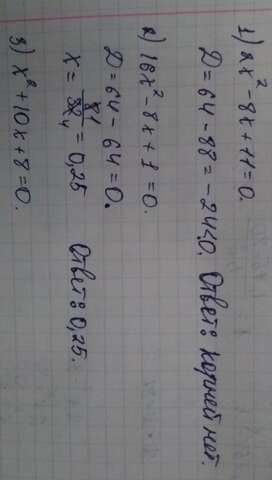 1) 2x² - 8x + 11 = 0.
D = 64 - 88 = -24 < 0. Ответ: корней нет.
2) 16x² - 8x + 1 = 0.
D = 64 - 64 = 0.
x = 8/32 = 0,25 Ответ: 0,25.
3) x² + 10x + 8 = 0.